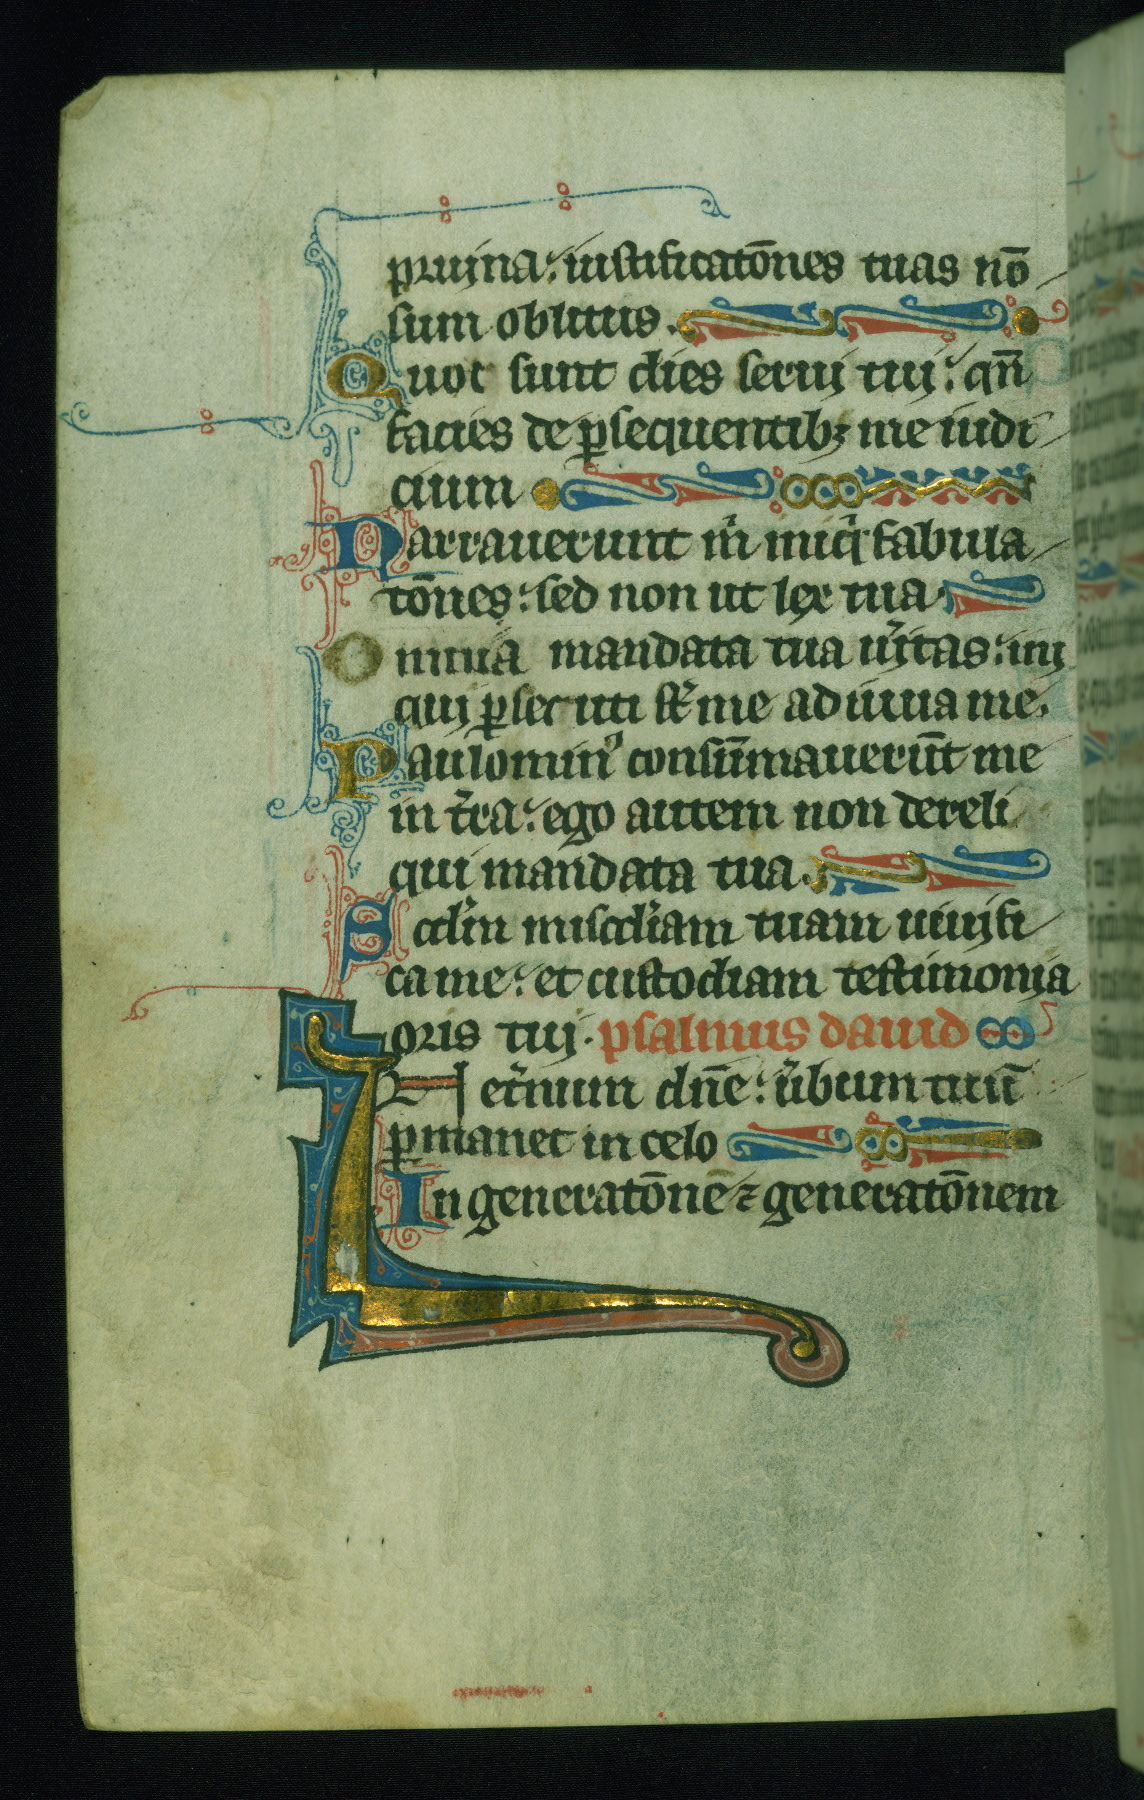 pruyna: iustificatōnes tuas nō
sum oblitus.
Quot sunt dies serui tuy: qn̄
facies de ꝑsequentibꝫ me iudi
cium
Narrauerunt m̄ iniq̄ fabula
tōnes: sed non ut lex tua.
Omnia mandata tua u̾itas: iniq
qui ꝑsecuti st̄ me adiuua me.
Paulominꝰ consūmmauerūt me
in t̾ra: ego autem non dereli
qui mandata tua.
Scdm̄ misc̄diam tuam uiuifi
ca me: et custodiam testimonia
oris tuj. psalmus dauid
In et̾num dn̄e: u̾bum tuū
ꝑmanet in celo
In generatōnē ⁊ generatōnem